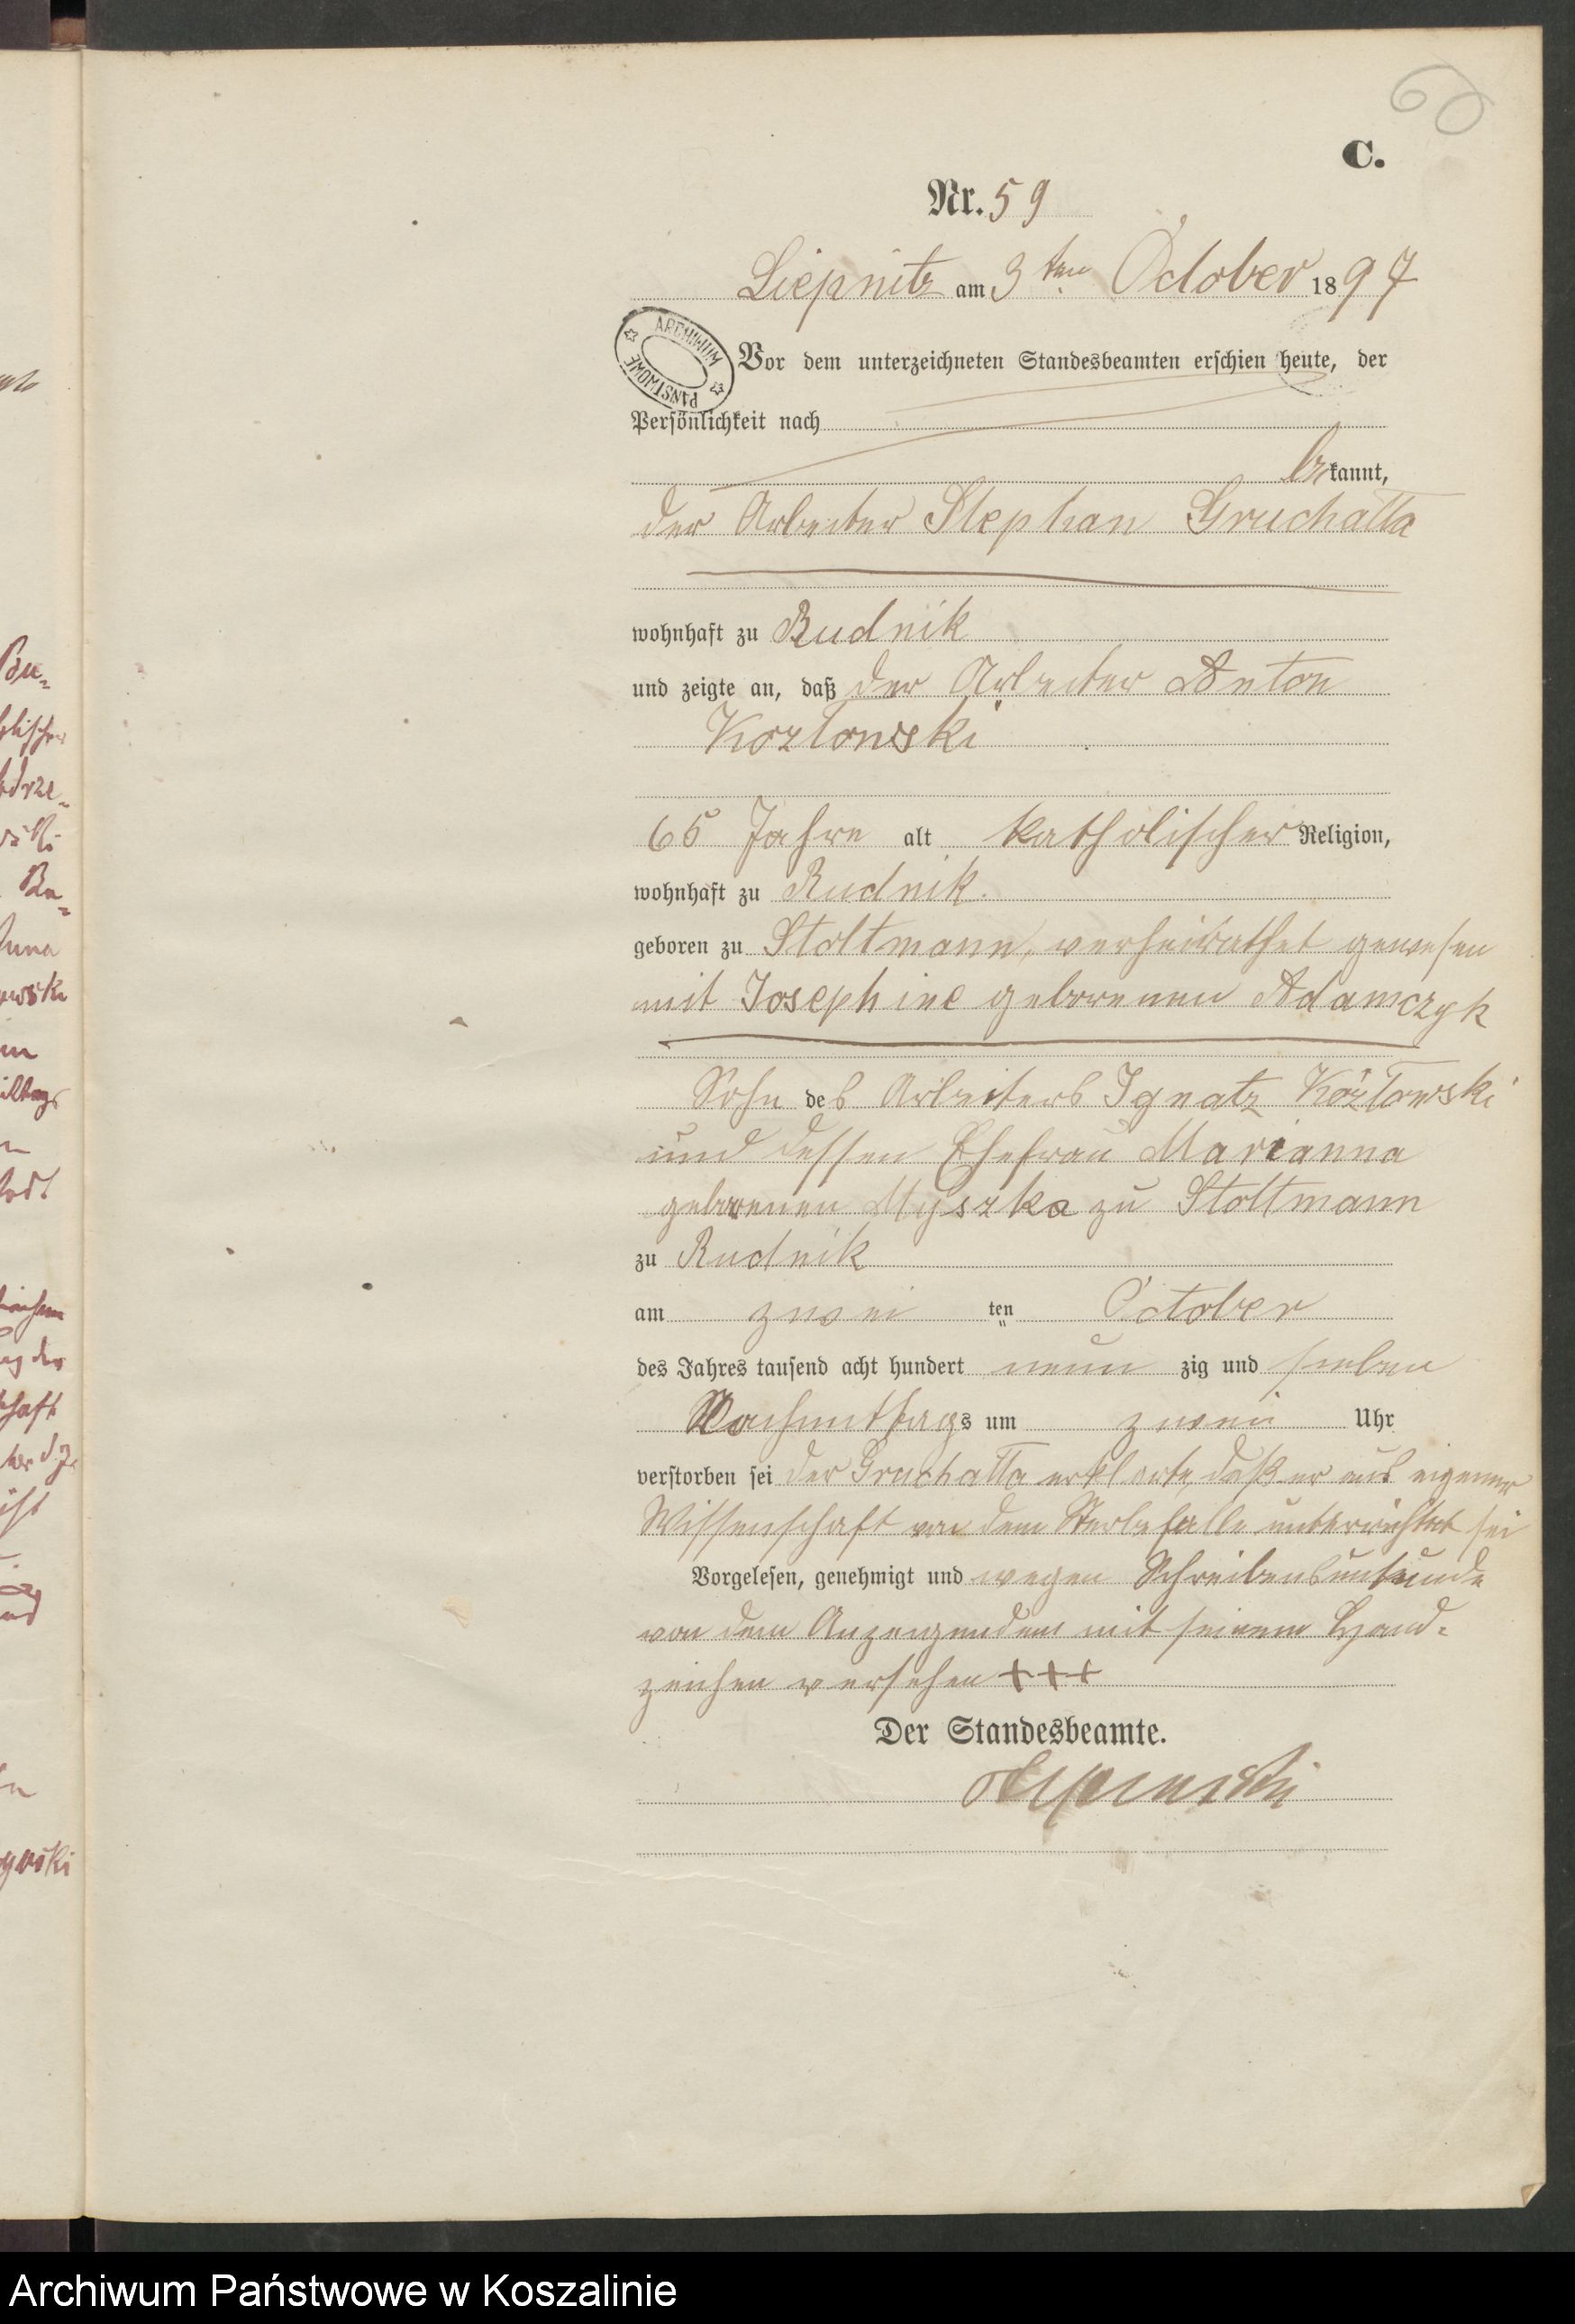 60
C.
Nr. 59
Liepnitz am 3ten October 1897
ARCHIWUM PAŃSTWOWE
Vor dem unterzeichneten Standesbeamten erschien heute, der
Persönlichkeit nach
bekannt,
der Arbeiter Stephan Gruchatta
wohnhaft zu Rudnik
und zeigte an, daß der Arbeiter Anton
Kozlowski
65 Jahre alt katholischer Religion,
wohnhaft zu Rudnik.
geboren zu Stoltmann, verheirathet gewesen
mit Josephine geborenen Adamczyk
Sohn des Arbeiters Ignatz Kozlowski
und dessen Ehefrau Marianna
geborenen Myszka zu Stoltmann
zu Rudnik
am zwei ten October
des Jahres tausend acht hundert neun zig und sieben
Nachmittags um zwei Uhr
verstorben sei der Gruchatta erklärte, daß er aus eigener
Wissenschaft von dem Sterbefalle unterrichtet sei
Vorgelesen, genehmigt und wegen Schreibensunkunde
von dem Anzeigenden mit seinem Hand-
zeichen versehen +++
Der Standesbeamte.
Archiwum Państwowe w Koszalinie